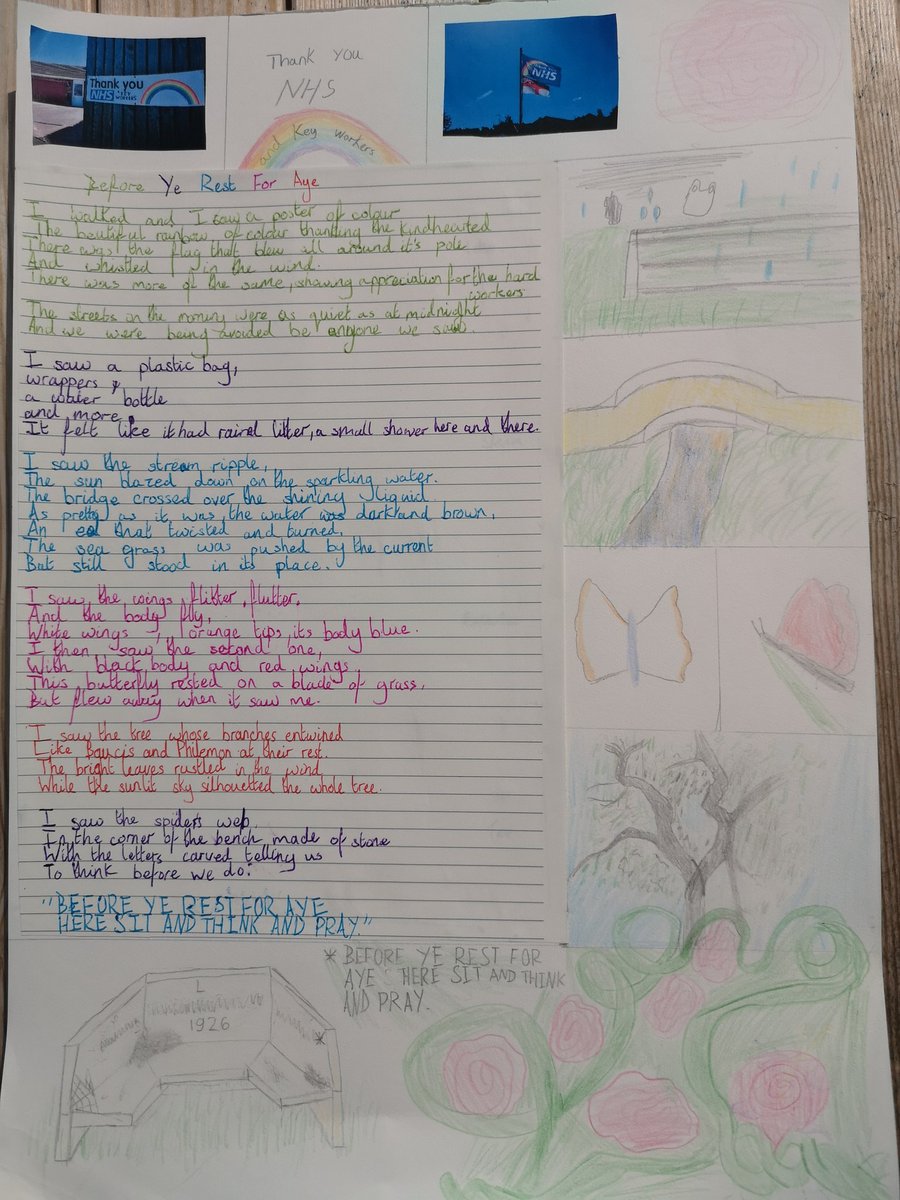 Thank you
NHS
& KEY WORKERS
Thank you
NHS
and Key Workers
NHS
Before Ye Rest For Aye
I walked and I saw a poster of colour
The boutiful rainbow of colour thanking the kindhearted
There was the flag that blew all around it's pole
And whistled in the wind.
There was more of the same, showing appreciation for the hard
workers
The streets on the morning were as quiet as at midnight
And we were being avoided be anyone we saw
I saw a plastic bag,
wrappers,
a water bottle
and more.
It felt like it had rained litter, a small shower here and there.
I saw the stream ripple,
The sun blazed down on the sparkling water.
The bridge crossed over the shining liquid.
As pretty as it was, the water was dark and brown,
An eel that twisted and turned,
The sea grass was pushed by the current
But still stood in its place.
I saw the wings flitter, flutter,
And the body fly,
White wings, orange tips, its body blue.
I then saw the second one,
With black body and red wings
This butterfly rested on a blade of grass,
But flew away when it saw me.
I saw the tree whose branches entwined
Like Baucis and Philemon at their rest.
The bright leaves rustled in the wind
While the sunlit sky silhouetted the whole tree.
I saw the spider's web
In the corner of the bench made of stone
With the letters carved telling us
To think before we do:
"BEFORE YE REST FOR AYE
HERE SIT AND THINK AND PRAY."
* BEFORE YE REST FOR
AYE HERE SIT AND THINK
AND PRAY.
L
1926
*